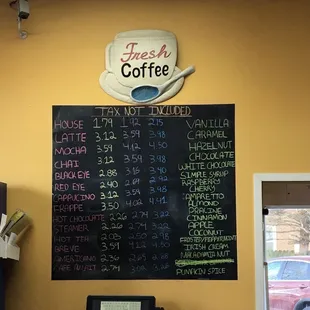 Fresh
Coffee
TAX NOT INCLUDED
HOUSE 1.79 1.92 2.15 VANILLA
LATTE 3.12 3.59 3.98 CARAMEL
MOCHA 3.59 4.12 4.50 HAZELNUT
CHAI 3.12 3.59 3.98 CHOCOLATE
WHITE CHOCOLATE
BLACK EYE 2.88 3.16 3.40 SIMPLE SYRUP
RED EYE 2.40 2.69 2.92 RASPBERRY
CHERRY
CAPPUCINO 3.12 3.59 3.98 AMARETTO
FRAPPE 3.50 4.02 4.41 ALMOND
PRALINE
HOT CHOCOLATE 2.26 2.74 3.22 CINNAMON
STEAMER 2.26 2.74 3.22 APPLE
HOT TEA COCONUT
BREVE 3.59 4.12 4.50 IRISH CREAM
AMERICANO 2.36 2.65 MACADAMIA NUT
PUMPKIN SPICE